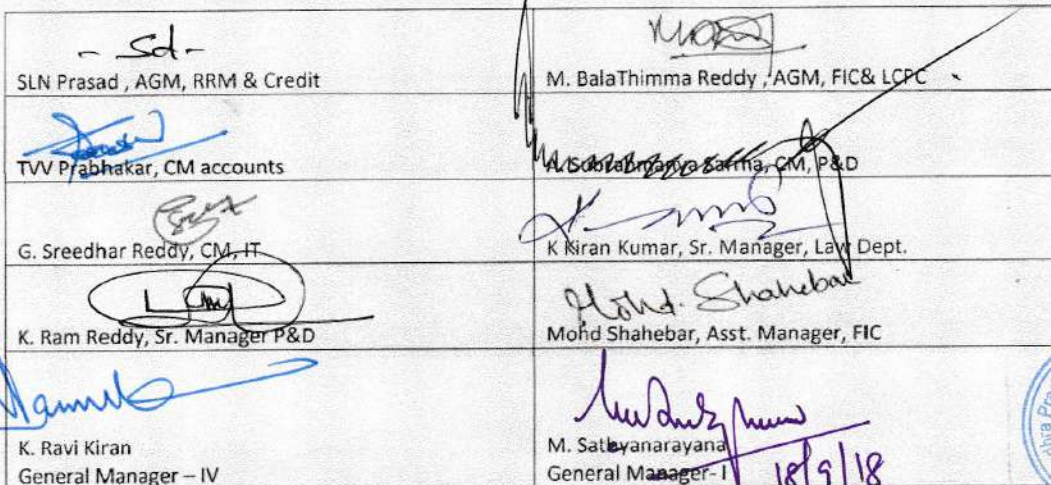 - Sd -
SLN Prasad , AGM, RRM & Credit
M. BalaThimma Reddy , AGM, FIC& LCPC
TVV Prabhakar, CM accounts
A. Subrahmanya Sarma, CM, P&D
G. Sreedhar Reddy, CM, IT
K Kiran Kumar, Sr. Manager, Law Dept.
K. Ram Reddy, Sr. Manager P&D
Mohd. Shahebar
Mohd Shahebar, Asst. Manager, FIC
K. Ravi Kiran
General Manager – IV
M. Sathyanarayana
General Manager- I
18/9/18